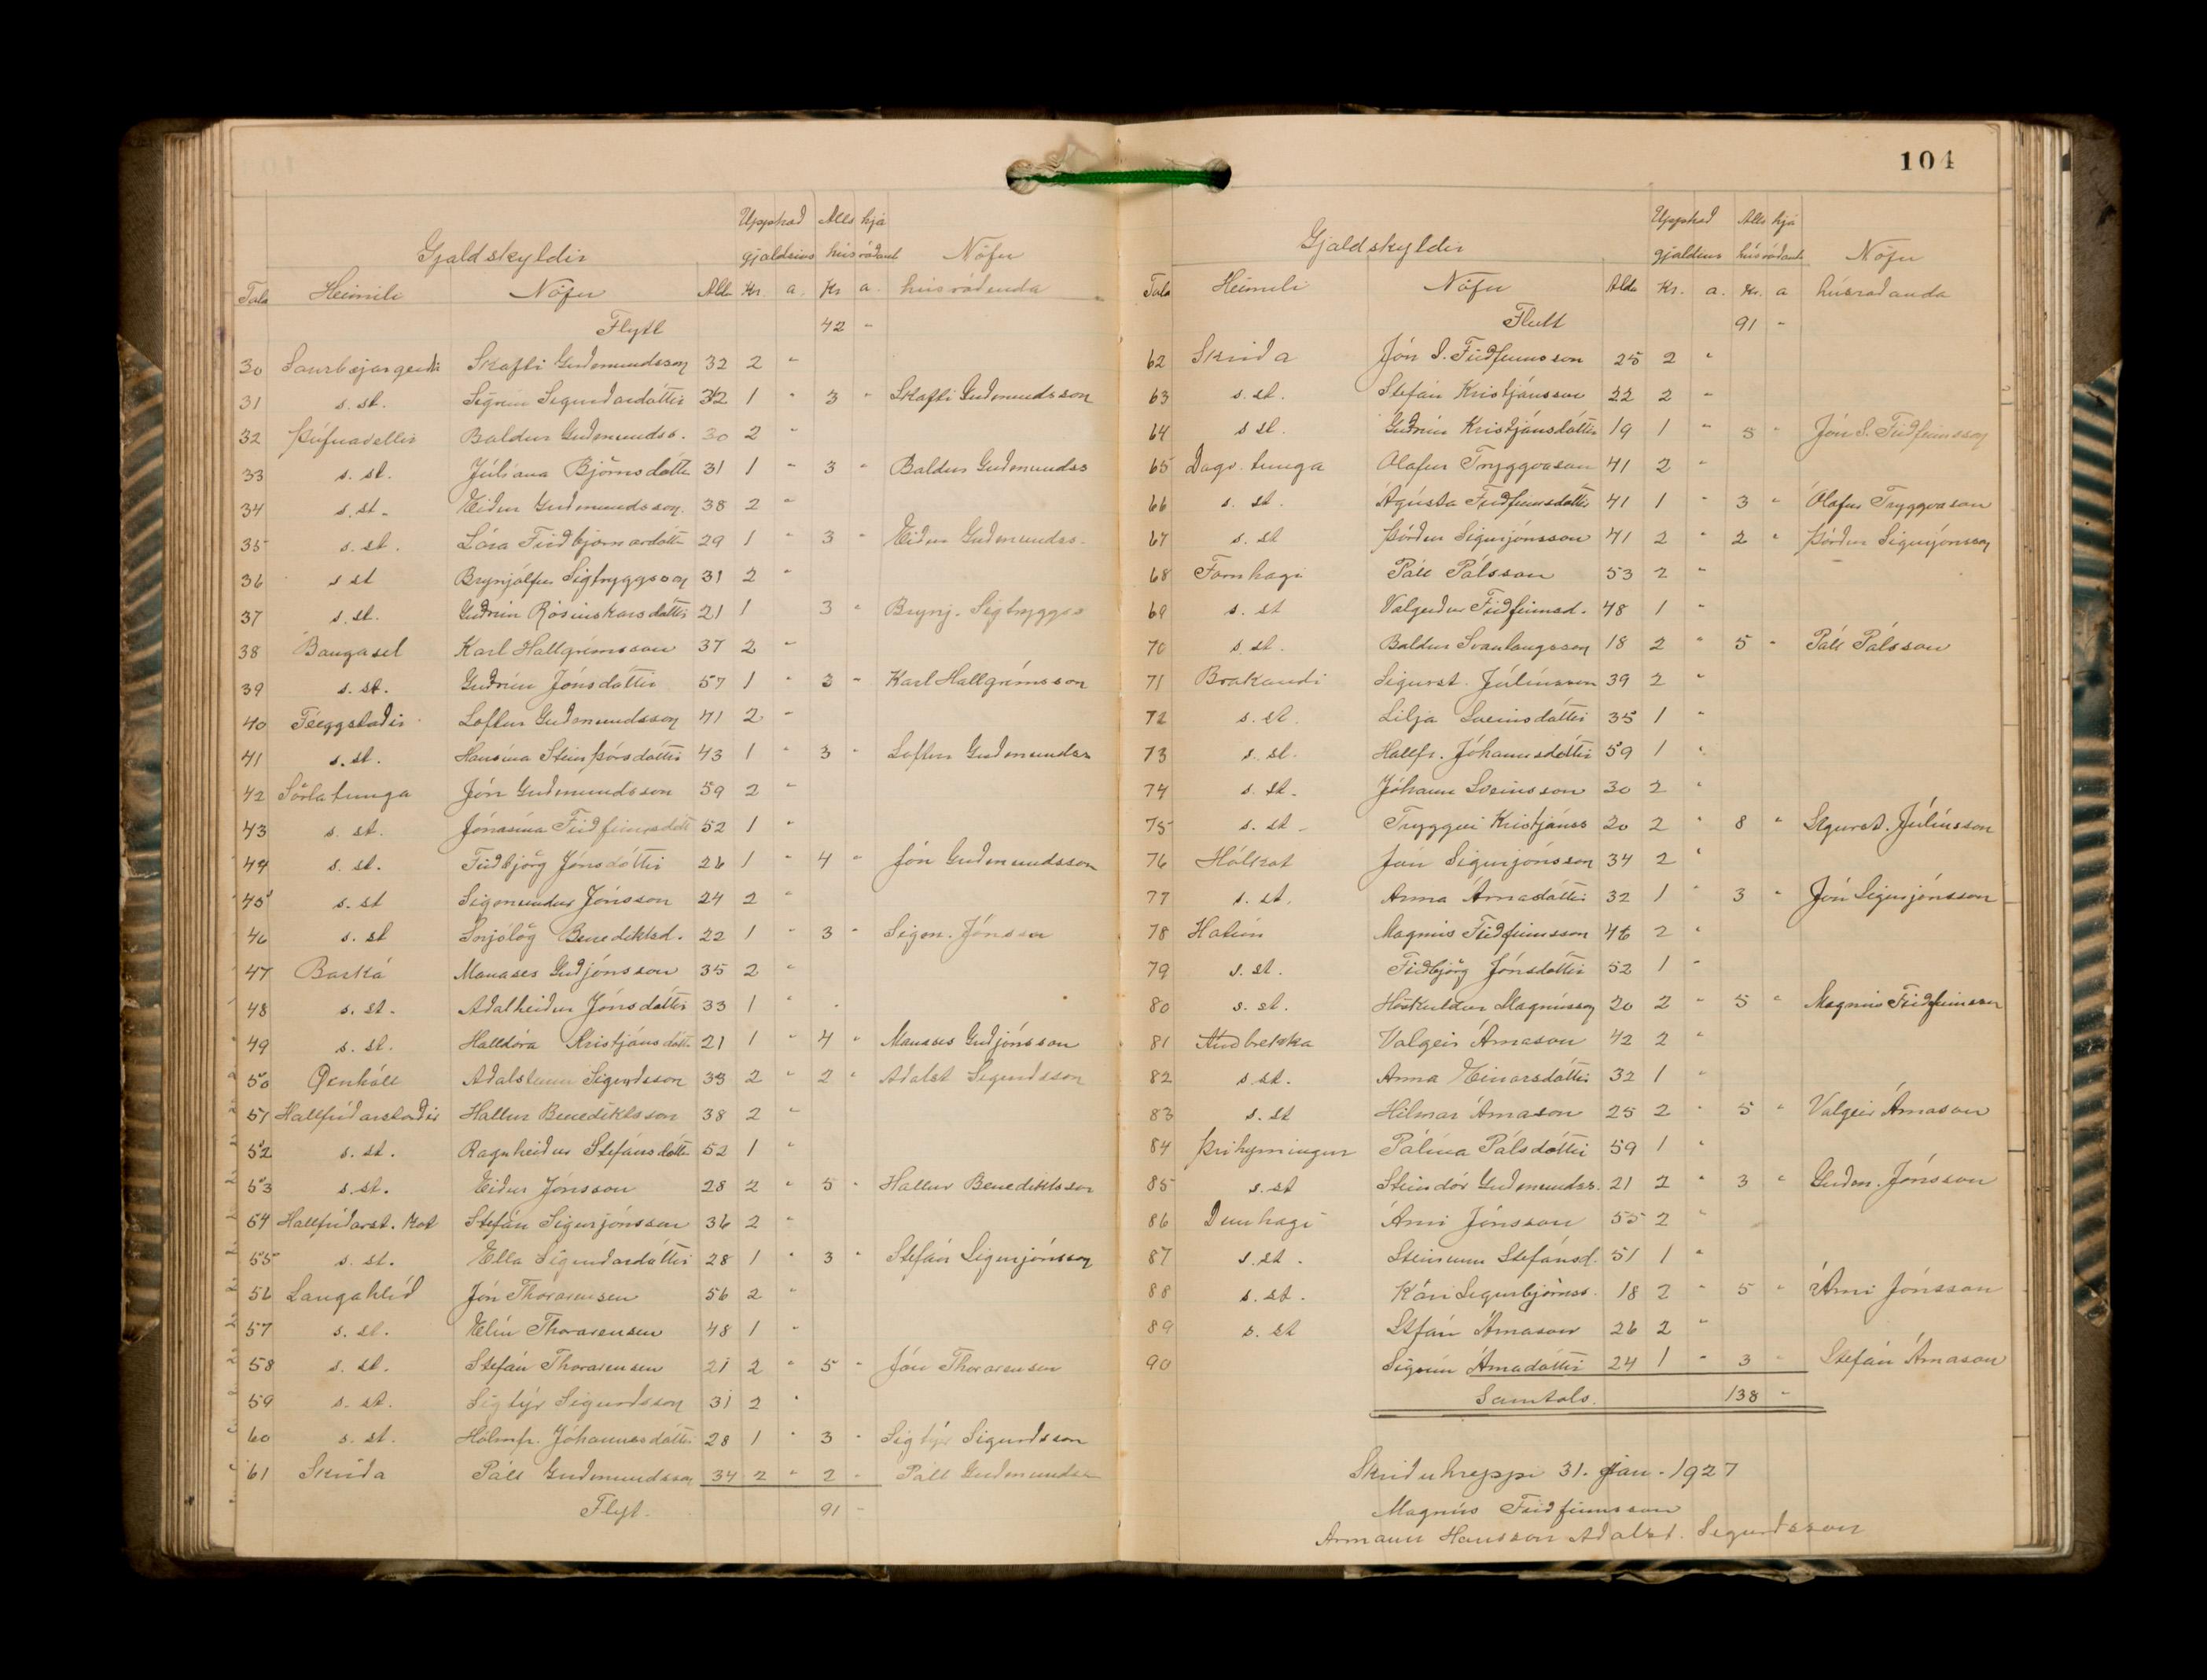 Gjaldskyldir Upphæð gjaldsins Alls hjá húsráðand Nöfn
Tala Heimili Nöfn Aldr Kr. a. Kr a. húsráðenda
Flytt 42 "
30 Saurbæjargerði Skafti Guðmundsson 32 2 "
31 s. st. Sigrún Sigurðardóttir 32 1 " 3 " Skafti Guðmundsson
32 Þúfnavellir Baldur Guðmundss. 30 2 "
33 s. st. Júlíana Björnsdótt 31 1 " 3 " Baldur Guðmundss
34 s. st. Eiður Guðmundsson 38 2 "
35 s. st. Lára Friðbjarnardótt 29 1 " 3 " Eiður Guðmundss.
36 s st Brynjólfur Sigtryggsson 31 2 "
37 s. st. Guðrún Rósinkarsdóttir 21 1 3 " Brynj. Sigtryggss
38 Baugasel Karl Hallgrímsson 37 2 "
39 s. st. Guðrún Jónsdóttir 57 1 " 3 " Karl Hallgrímsson
40 Féeggstaðir Loftur Guðmundsson 41 2 "
41 s. st. Hansína Steinþórsdóttir 43 1 " 3 " Loftur Guðmundss
42 Sörlatunga Jón Guðmundsson 59 2 "
43 s. st. Jónasína Friðfinnsdótt 52 1 "
44 s. st. Friðbjörg Jónsdóttir 26 1 " 4 " Jón Guðmundsson
45 s. st Sigmundur Jónsson 24 2 "
46 s. st Snjólög Benediktsd. 22 1 " 3 " Sigm. Jónsson
47 Barká Manases Guðjónsson 35 2 "
48 s. st. Aðalheiður Jónsdóttir 33 1 "
49 s. st. Halldóra Kristjánsdótt. 21 1 " 4 " Manases Guðjónsson
50 Öxnhóll Aðalsteinn Sigurðsson 33 2 " 2 " Aðalst Sigurðsson
51 Hallfríðarstaðir Hallur Benediktsson 38 2 "
52 s. st. Ragnheiður Stefánsdótt. 52 1 "
53 s. st. Eiður Jónsson 28 2 " 5 " Hallur Benediktsson
54 Hallfríðarst. kot Stefán Sigurjónsson 36 2 "
55 s. st. Ella Sigurðardóttir 28 1 " 3 " Stefán Sigurjónsson
56 Langahlíð Jón Thorarensen 56 2 "
57 s. st. Elín Thorarensen 48 1 "
58 s. st. Stefán Thorarensen 21 2 " 5 " Jón Thorarensen
59 s. st. Sigtýr Sigurðsson 31 2 "
60 s. st. Hólmfr. Jóhannesdóttir 28 1 " 3 " Sigtýr Sigurðsson
61 Skriða Páll Guðmundsson 34 2 " 2 " Páll Guðmundss
Flyt. 91 "
104
Gjaldskyldir Upphæð gjaldsins Alls hjá húsráðanda Nöfn
Tala Heimili Nöfn Aldr Kr. a. Kr. a húsráðanda
Flutt 91 "
62 Skriða Jón S. Friðfinnsson 25 2 "
63 s. st. Stefán Kristjánsson 22 2 "
64 s st. Guðrún Kristjánsdóttir 19 1 " 5 " Jón S. Friðfinnsson
65 Dagv. tunga Ólafur Tryggvason 41 2 "
66 s. st. Ágústa Friðfinnsdóttir 41 1 " 3 " Ólafur Tryggvason
67 s. st Þórður Sigurjónsson 41 2 " 2 " Þórður Sigurjónsson
68 Fornhagi Páll Pálsson 53 2 "
69 s. st Valgerður Friðfinnsd. 48 1 "
70 s. st. Baldur Svanlaugsson 18 2 " 5 " Páll Pálsson
71 Brakandi Sigurst. Júlíusson 39 2 "
72 s. st. Lilja Sveinsdóttir 35 1 "
73 s. st. Hallfr. Jóhannsdóttir 59 1 "
74 s. st. Jóhann Sveinsson 30 2 "
75 s. st. Tryggvi Kristjánss 20 2 " 8 " Sigurst. Júlíusson
76 Hólkot Jón Sigurjónsson 34 2 "
77 s. st. Anna Árnadóttir 32 1 " 3 " Jón Sigurjónsson
78 Hátún Magnús Friðfinnsson 46 2 "
79 s. st. Friðbjörg Jónsdóttir 52 1 "
80 s. st. Höskuldur Magnússon 20 2 " 5 " Magnús Friðfinnsson
81 Auðbrekka Valgeir Árnason 42 2 "
82 s. st. Anna Einarsdóttir 32 1 "
83 s. st Hilmar Árnason 25 2 " 5 " Valgeir Árnason
84 Þríhyrningur Pálína Pálsdóttir 59 1 "
85 s. st Steindór Guðmundss. 21 2 " 3 " Guðm. Jónsson
86 Dunhagi Árni Jónsson 55 2 "
87 s. st. Steinunn Stefánsd. 51 1 "
88 s. st. Kári Sigurbjörnss. 18 2 " 5 " Árni Jónsson
89 s. st Stefán Árnason 26 2 "
90 Sigrún Árnadóttir 24 1 " 3 " Stefán Árnason
Samtals. 138 "
Skriðuhreppi 31. jan. 1927
Magnús Friðfinnsson
Ármann Hansson Aðalst. Sigurðsson